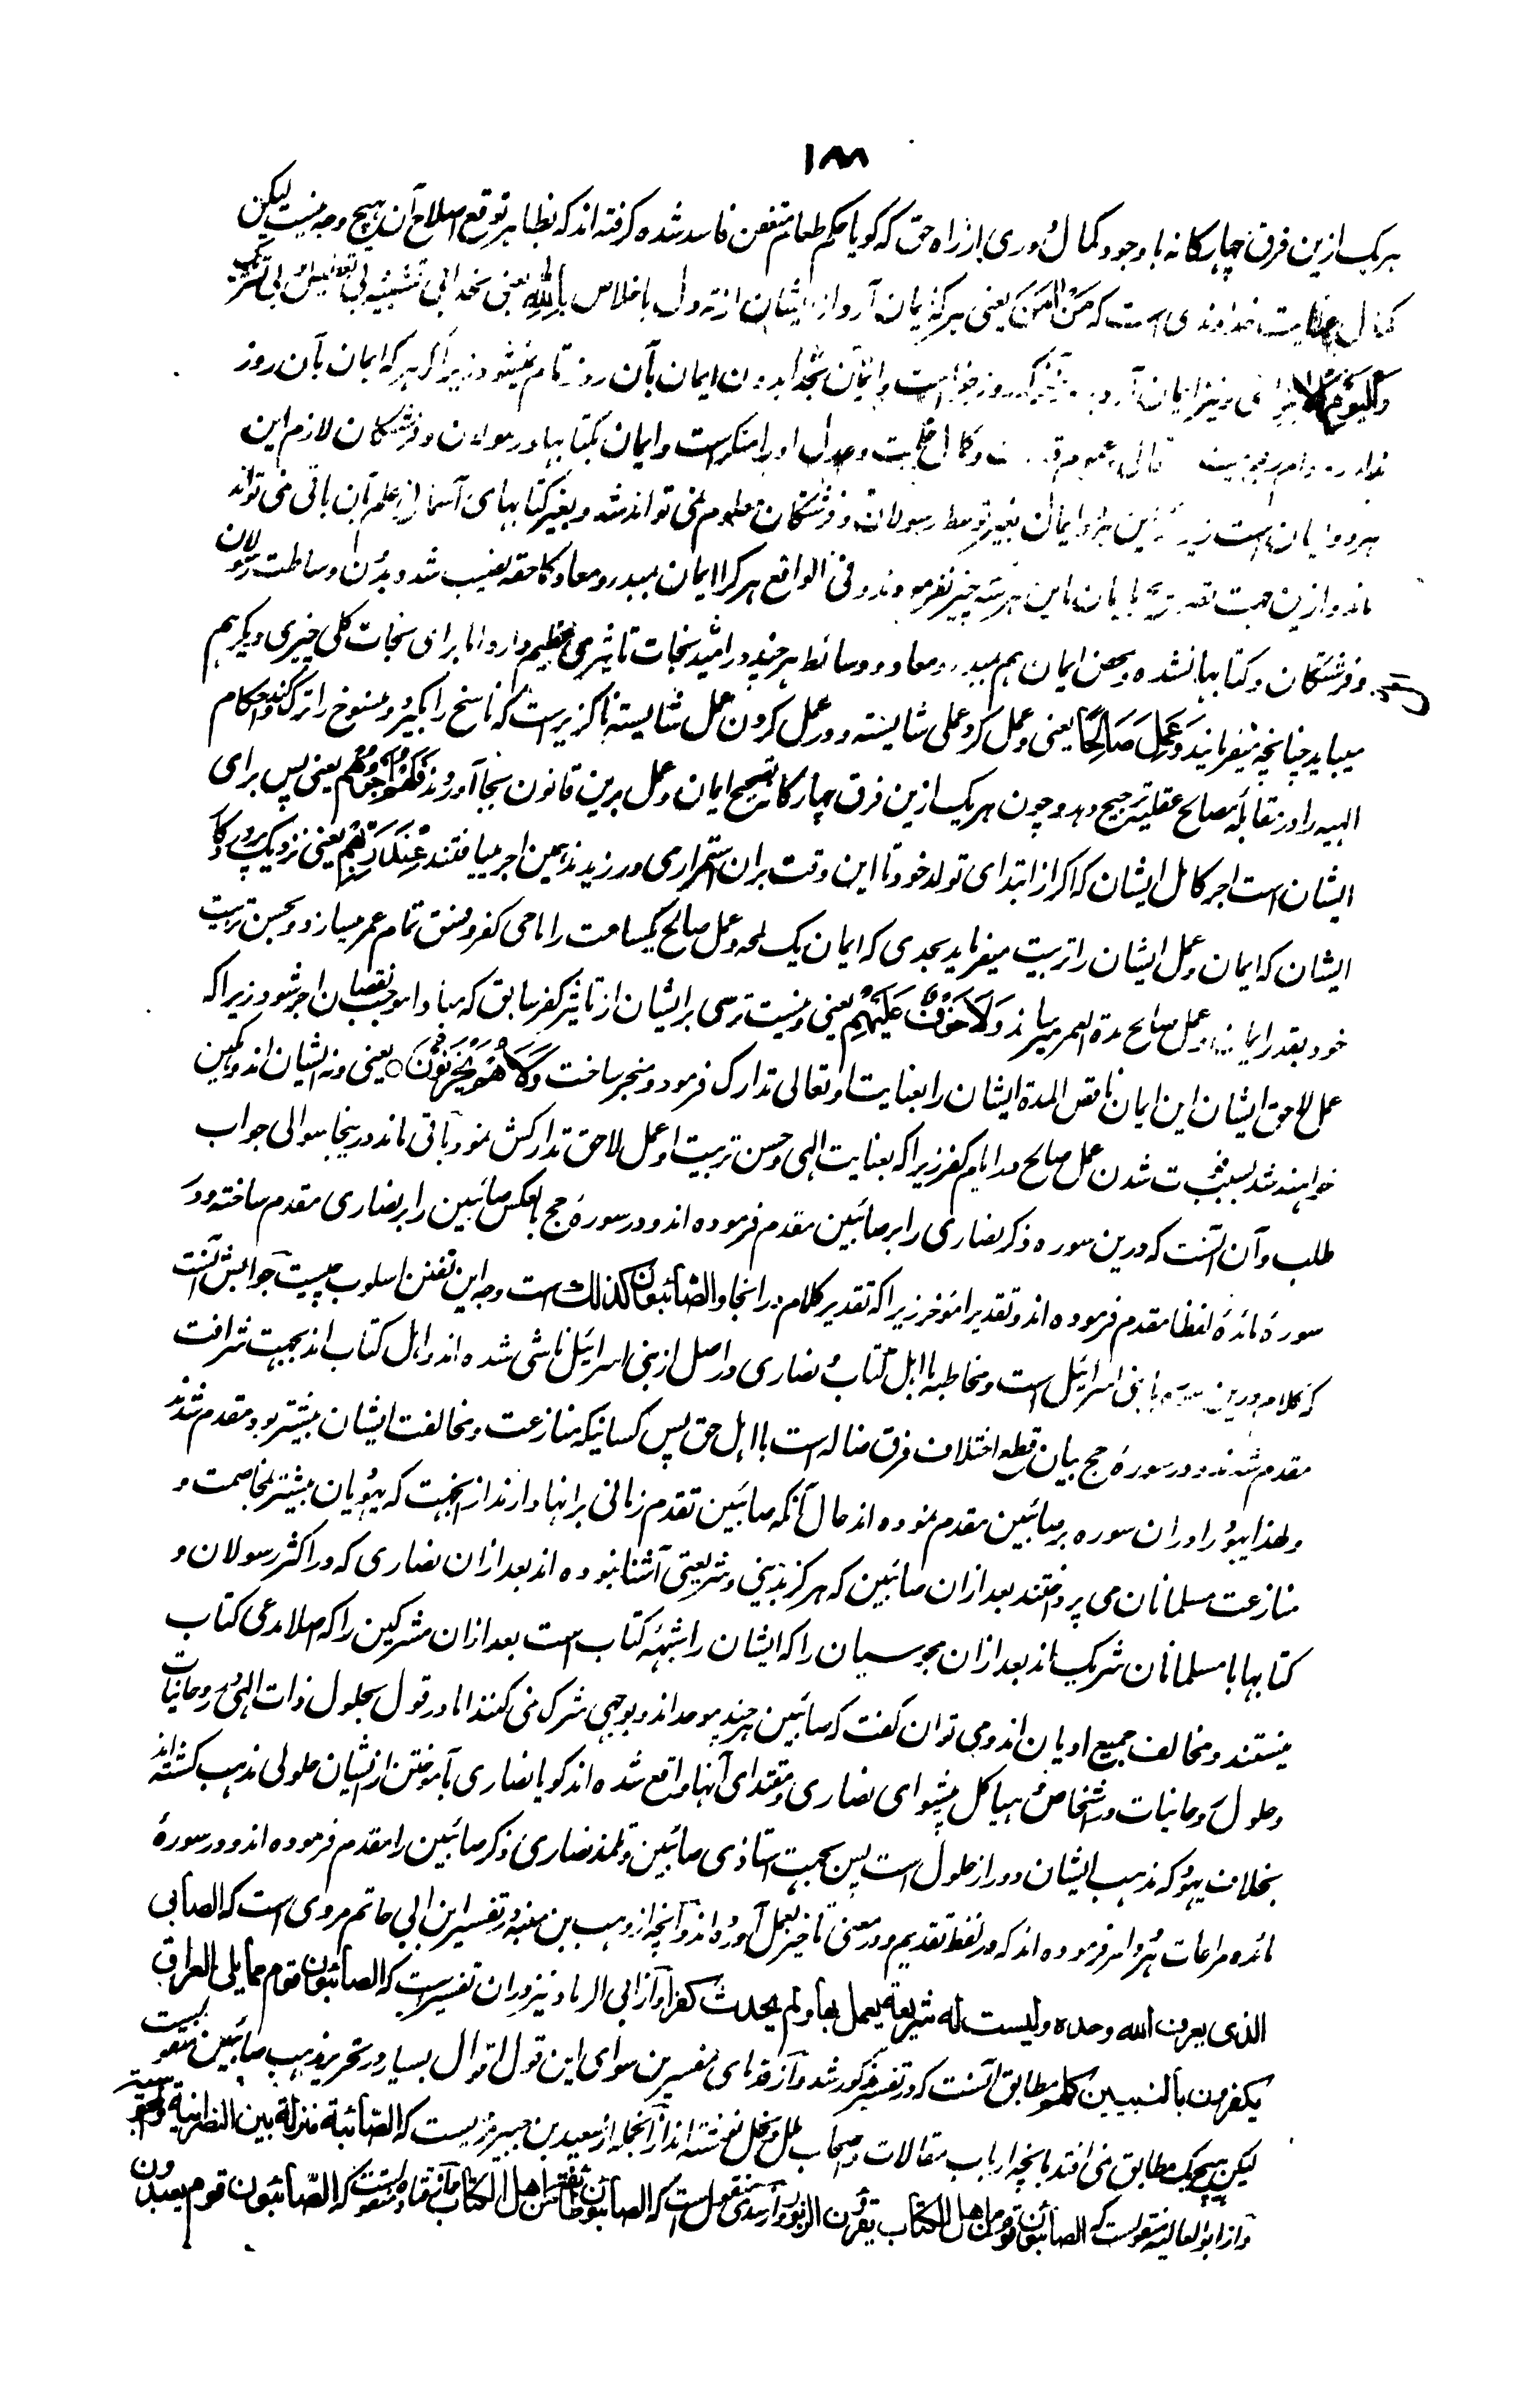 ١٨٨
هریک ازین فرق چهارکانه با وجود کمال دوری از راه حق که کویا حکم طعام متعفن فاسد شده کرفته اند که بظاهر توقع اصلاح آن بهیچ وجه نیست لیکن
کمال عنایت خداوندی است که مَنْ اٰمَنَ یعنی هرکه ایمان آرد از ایشان از ته دل باخلاص بِاللهِ یعنی بخدا بی تشبیه بی
وَالْیَوْمِ الْاٰخِرِ یعنی و نیز ایمان آرد بروز آخر که روز جزا است و ایمان بخدا بدون ایمان بآن روز تمام نمیشود زیراکه هرکه ایمان بآن روز
ندارد و عدل او را منکر است و ایمان بکتابها و رسولان و فرشتکان لازم این
هر دو ایمان است زیرا که این هر دو ایمان بغیر توسط رسولان و فرشتکان معلوم نمی تواند شد و بغیر کتابهای آسمانی علم آن باقی نمی تواند
ماند و ازین جهت تصریح بایمان باین هر سه چیز نفرمودند و فی الواقع هر کرا ایمان بمبدء و معاد کما حقه نصیب شد و بدون وساطت رسولان
و فرشتکان و کتابها نشده و محض ایمان هم بمبدء و معاد و وسائط هر چند در امید نجات تاثیری عظیم دارد اما برای نجات کلی چیزی دیکر هم
میباید چنانچه میفرمایند وَعَمِلَ صَالِحًا یعنی و عمل کرد عملی شایسته و در عمل کردن عمل شایسته ناکزیر است که ناسخ را بکیرد و منسوخ را ترک کند و احکام
الهیه را در مقابله مصالح عقلیه ترجیح دهد و چون هریک ازین فرق چهارکانه تصحیح ایمان و عمل برین قانون بجا آوردند فَلَهُمْ اَجْرُهُمْ یعنی پس برای
ایشان است اجر کامل ایشان که اکر از ابتدای تولد خود تا این وقت بران استمرار می ورزیدند همین اجر مییافتند عِنْدَ رَبِّهِمْ یعنی نزدیک پروردکار
ایشان که ایمان و عمل ایشان را تربیت میفرماید بحدی که ایمان یک لمحه و عمل صالح یکساعت را ماحی کفر و فسق تمام عمر میسازد و بحسن تربیت
خود بقدر ایمان و عمل صالح مدة العمر میرساند وَلَا خَوْفٌ عَلَیْهِمْ یعنی و نیست ترسی بر ایشان از تاثیر کفر سابق که مبادا موجب نقصان اجر شود زیراکه
عمل لاحق ایشان این ایمان ناقص المدة ایشان را بعنایت او تعالی تدارک فرمود و منجبر ساخت وَلَا هُمْ یَحْزَنُوْنَ یعنی و نه ایشان اندوهکین
خواهند شد بسبب فوت شدن عمل صالح در ایام کفر زیراکه بعنایت الهی و حسن تربیت او عمل لاحق تدارکش نمود باقی ماند درینجا سوالی جواب
طلب و آن آنست که درین سوره ذکر نصاری را بر صائبین مقدم فرموده اند و در سورهٔ حج بالعکس صائبین را بر نصاری مقدم ساخته و در
سورهٔ مائده لفظا مقدم فرموده اند و تقدیرا مؤخر زیراکه تقدیر کلام در انجا والصائبون کذلک است وجه این تفنن اسلوب چیست جوابش آنست
که کلام درین سوره با بنی اسرائیل است و مخاطبه با اهل کتاب و نصاری در اصل از بنی اسرائیل ناشی شده اند و اهل کتاب اند بجهت شرافت
مقدم شدند و در سورهٔ حج بیان قطع اختلاف فرق ضاله است با اهل حق پس کسانیکه منازعت و مخالفت ایشان بیشتر بود مقدم شدند
و لهذا یهود را دران سوره بر صائبین مقدم نموده اند حال آنکه صائبین تقدم زمانی بر انها دارند ازانجهت که یهودیان بیشتر بمخاصمت و
منازعت مسلمانان می پرداختند بعد ازان صائبین که هرکز بدینی و شریعتی آشنا نبوده اند بعد ازان نصاری که در اکثر رسولان و
کتابها با مسلمانان شریک اند بعد ازان مجوسیان را که ایشان را شبهه کتاب است بعد ازان مشرکین را که اصلا مدعی کتاب
نیستند و مخالف جمیع ادیان اند و می توان کفت که صائبین هر چند موحد اند و بوجهی شرک نمی کنند اما در قول بحلول ذات الهی در روحانیات
و حلول روحانیات در اشخاص و هیاکل پیشوای نصاری و مقتدای آنها واقع شده اند کویا نصاری بآموختن از ایشان حلولی مذهب کشته اند
بخلاف یهود که مذهب ایشان دور از حلول است پس بجهت استاذی صائبین و تلمذ نصاری ذکر صائبین را مقدم فرموده اند و در سورهٔ
مائده مراعات هر دو امر فرموده اند که در لفظ تقدیم و در معنی تاخیر بعمل آورده اند و آنچه از وهب بن منبه در تفسیر ابن ابی حاتم مروی است که الصابی
الذی یعرف الله وحده ولیست له شریعة یعمل بها ولم یحدث کفرا و از ابی الزناد نیز دران تفسیر است که الصائبون قوم مما یلی العراق
یکفرون بالنبیین کلهم مطابق آنست که در تفسیر مذکور شد و از قدمای مفسرین سوای این قول اقوال بسیار در تحریر مذهب صائبین منقول است
لیکن هیچ یک مطابق نمی افتد بانچه ارباب مقالات و اصحاب ملل و نحل نوشته اند ازانجمله از سعید بن جبیر مرویست که الصّائبة منزلة بین النصرانیة والمجوسیة
و از ابو العالیه منقولست که الصائبون قوم من اهل الکتاب یقرؤن الزبور و از سدی منقول است که الصائبون طائفة من اهل الکتاب و از قتاده منقولست که الصّائبون قوم یعبدون